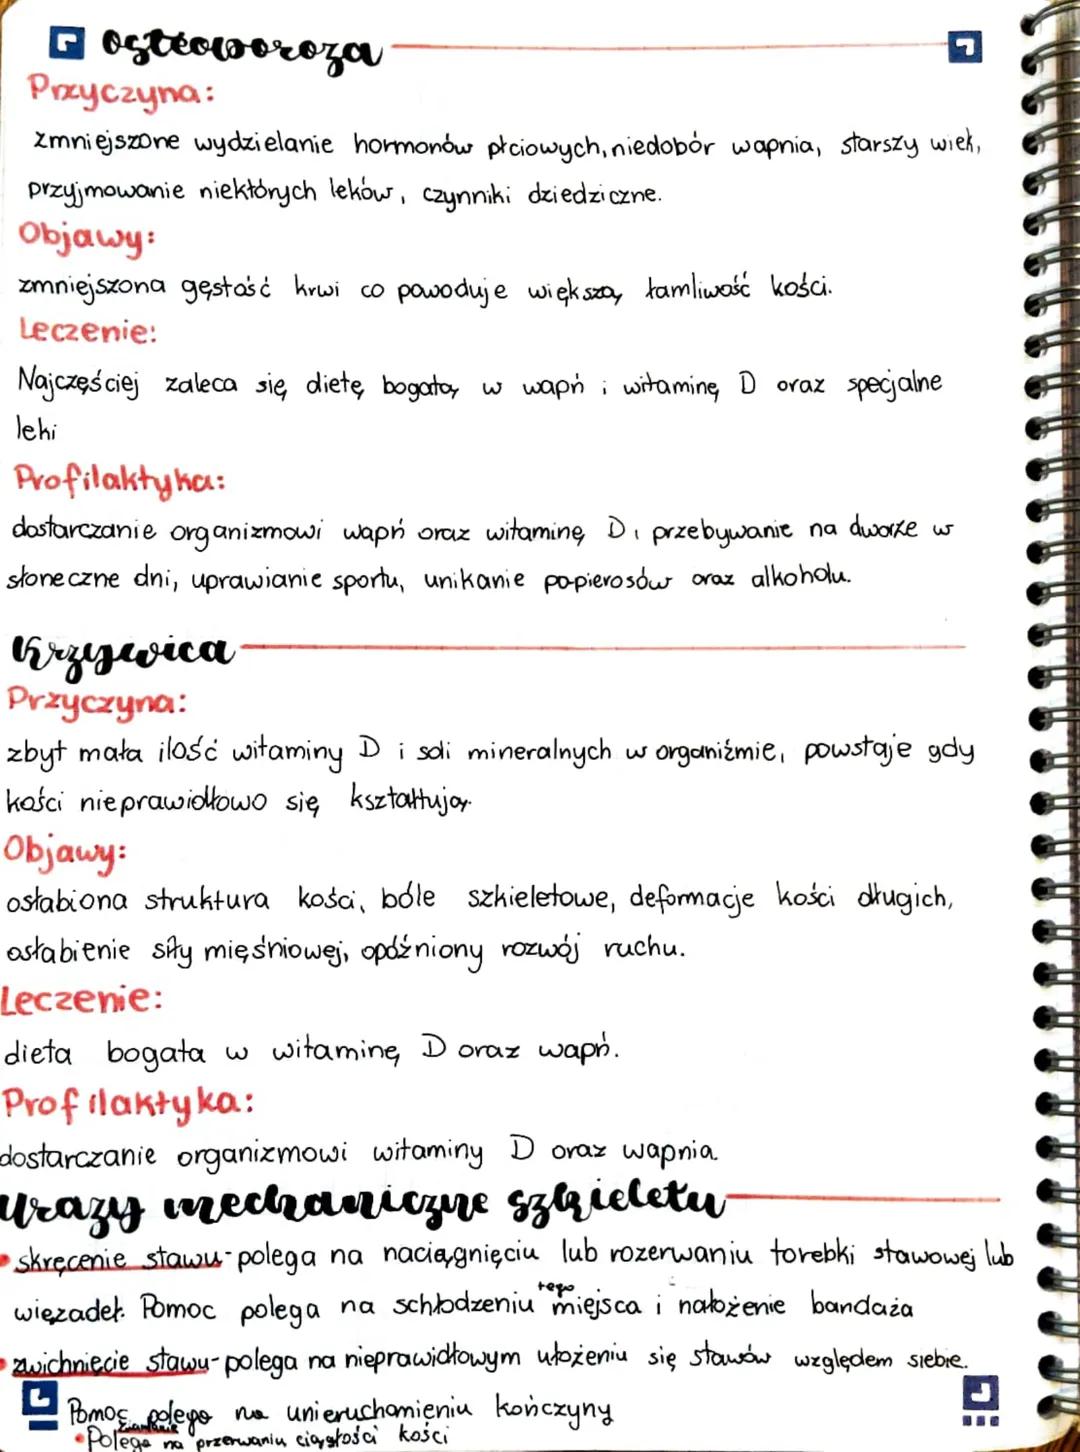 osteoporoza
Przyczyna:
zmniejszone wydzielanie hormonów płciowych, niedobór wapnia, starszy wiek,
przyjmowanie niektórych leków, czynniki dziedziczne.
Objawy:
zmniejszona gęstość krwi co powoduje większą łamliwość kości.
Leczenie:
Najczęściej zaleca się dietę bogatą w wapń i witaminę D oraz specjalne
leki
Profilaktyka:
dostarczanie organizmowi wapń oraz witaminę D, przebywanie na dworze w
słoneczne dni, uprawianie sportu, unikanie papierosów oraz alkoholu.
Krzywica
Przyczyna:
zbyt mała ilość witaminy D i soli mineralnych w organiźmie, powstaje gdy
kości nieprawidłowo się kształtują.
Objawy:
osłabiona struktura kości, bóle szkieletowe, deformacje kości długich,
osłabienie siły mięśniowej, opóźniony rozwój ruchu.
Leczenie:
dieta bogata w witaminę D oraz wapń.
Profilaktyka:
dostarczanie organizmowi witaminy D oraz wapnia
Urazy mechaniczne szkieletu
• skręcenie stawu - polega na naciągnięciu lub rozerwaniu torebki stawowej lub
więzadeł. Pomoc polega na schłodzeniu tego miejsca i nałożenie bandaża
• zwichnięcie stawu - polega na nieprawidłowym ułożeniu się stawów względem siebie.
Pomoc polega na unieruchomieniu kończyny
złamanie
• Polega na przerwaniu ciągłości kości